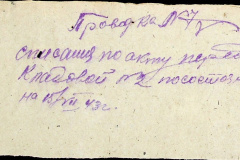 Проводка №7
списания по акту перед
Кладовой №2 по состоян
на 10/VII 43г.